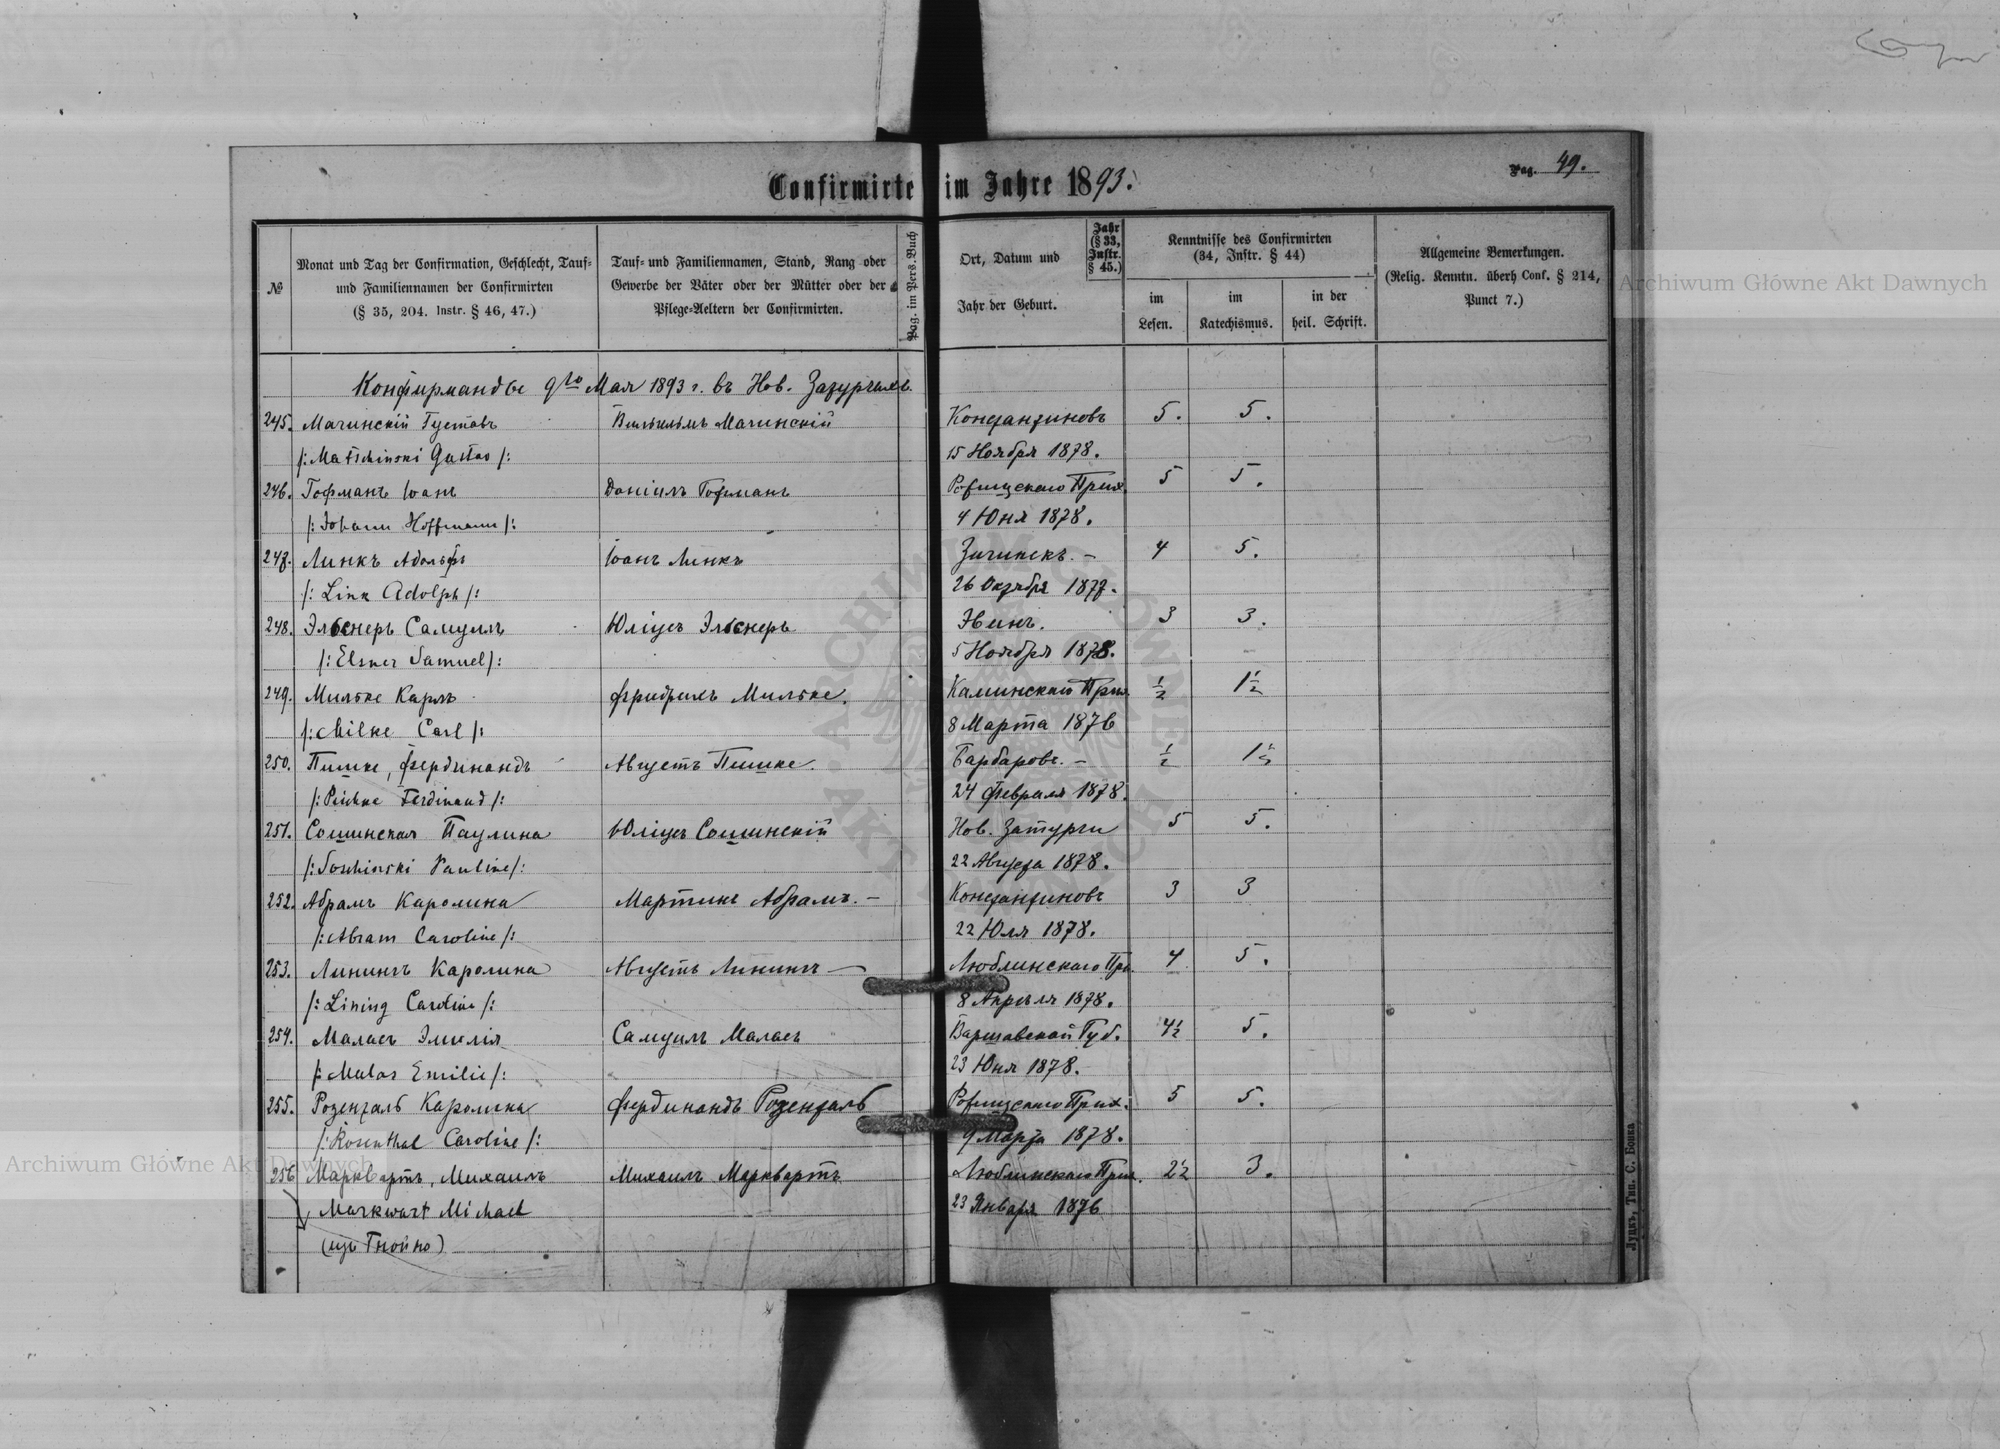 Confirmirte im Jahre 1893.
Pag. 49.
№
Monat und Tag der Confirmation, Geschlecht, Tauf-
und Familiennamen der Confirmirten
(§ 35, 204. Instr. § 46, 47.)
Tauf- und Familiennamen, Stand, Rang oder
Gewerbe der Väter oder der Mütter oder der
Pflege-Aeltern der Confirmirten.
Pag. im Pers. Buch
Ort, Datum und
Jahr der Geburt.
Jahr
(§ 33,
Instr.
§ 45.)
Kenntnisse des Confirmirten
(34, Instr. § 44)
im
Lesen.
im
Katechismus.
in der
heil. Schrift.
Allgemeine Bemerkungen.
(Relig. Kenntn. überh Conf. § 214,
Punct 7.)
Конфирманды 9го Мая 1893 г. въ Нов.
245. Мачинскій Густавъ Вильгельмъ Мачинскій Константиновъ 5. 5.
/: Matschinski Gustav /: 15 Ноября 1878.
246. Гофманъ Іоанъ Даніилъ Гофманъ Рожищскаго Прих. 5 5.
/: Johann Hoffmann /: 4 Юня 1878.
247. Линкъ Адольфъ Іоанъ Линкъ 4 5.
/: Link Adolph /: 26 Октября 1877.
248. Эльснеръ Самуилъ Юліусъ Эльснеръ 3 3.
/: Elsner Samuel /: 5 Ноября 1878.
249. Мильке Карлъ Фридрихъ Мильке. Каминскаго Прих. ½ 1½
/: Milke Carl /: 8 Марта 1876
250. Пишке, Фердинандъ Августъ Пишке. Барбаровъ. – ½ 1½
/: Pischke Ferdinand /: 24 Февраля 1878.
251. Сошинская Паулина Юліусъ Сошинскій Нов. Затурги 5 5.
/: Soschinski Pauline /: 22 Августа 1878.
252. Абрамъ Каролина Мартинъ Абрамъ. – Константиновъ 3 3
/: Abram Caroline /: 22 Юля 1878.
253. Линингъ Каролина Августъ Линингъ – Люблинскаго Прих. 4 5.
/: Lining Caroline /: 8 Апрѣля 1878.
254. Маласъ Эмилія Самуилъ Маласъ Варшавской Губ. 4½ 5.
/: Malas Emilie /: 23 Юня 1878.
255. Розенталь Каролина Фердинандъ Розенталь Рожищскаго Прих. 5 5.
/: Rosenthal Caroline /: 9 Марта 1878.
256 Марквартъ, Михаилъ Михаилъ Марквартъ Люблинскаго Прих. 2½ 3.
Markwart Michael 23 Января 1876
(изъ Гнойно)
Луцкъ, Тип. С. Бонка
Archiwum Główne Akt Dawnych
Archiwum Główne Akt Dawnych
ARCHIWUM GŁÓWNE AKT DAWNYCH